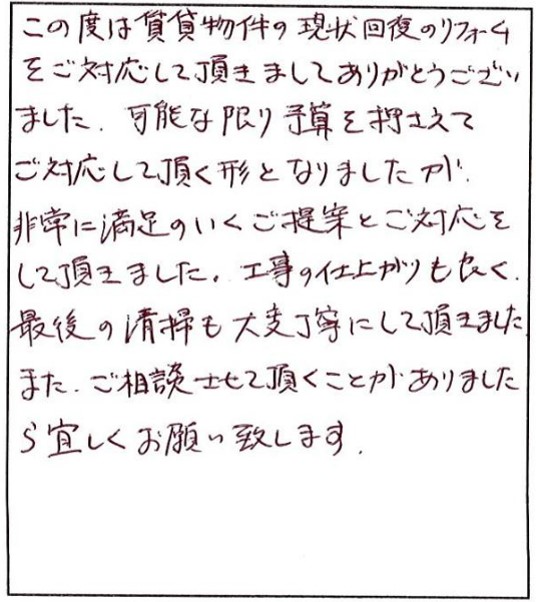 この度は賃貸物件の現状回復のリフォーム
をご対応して頂きましてありがとうござい
ました。可能な限り予算を押さえて
ご対応して頂く形となりましたが、
非常に満足のいくご提案とご対応を
して頂きました。工事の仕上がりも良く、
最後の清掃も大変丁寧にして頂きました
また、ご相談させて頂くことがありました
ら宜しくお願い致します。